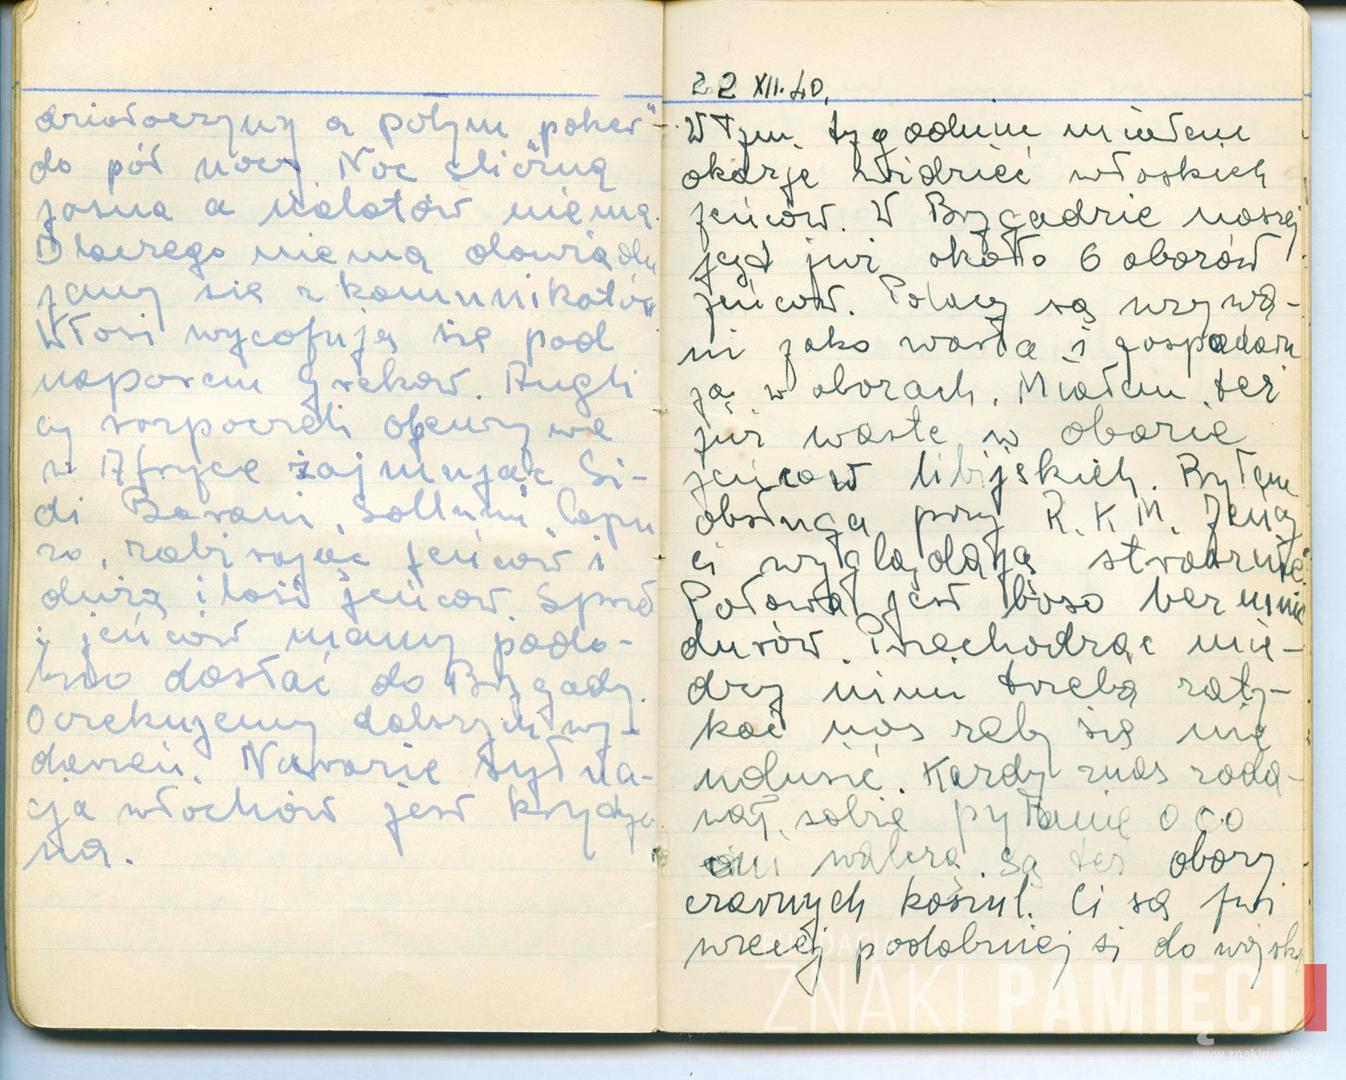 dziołoczyny a potym "poker"
do pół nocy. Noc śliczna
jasna a nalotów niema.
Dlaczego niema dowiadu
jemy się z komunikatów
Włosi wycofują się pod
naporem greków. Angli
cy rozpoczeli ofenzywe
w Afryce zajmując Si-
di Barani, Sollum, Capu
zo, zabierając jeńców i
dużą ilość jeńców Spośró
j jeńców mamy podo-
bno dostać do Brygady.
Oczekujemy dalszych wy-
darzeń. Narazie sytua-
cja włochów jest krytycz
na.
22 XII.40.
W tym tygodniu miałem
okazje widzieć włoskich
jeńców. W Brygadzie naszej
jest już około 6 obozów
jeńców. Polacy są wzywa-
ni jako warta i gospodaru
ją w obozach. Miałem też
już warte w obozie
jeńców libijskich. Byłem
obsługą przy R.K.M. Jeńcy
ci wyglądają strasznie.
Połowa jest boso bez mun
durów. Przechodząc mię-
dzy nimi trzeba zaty-
kać nos żeby się nie
udusić. Każdy znas zada-
wał sobie pytanie o co
oni walczą. Są też obozy
czarnych koszul. Ci są już
wiecej podobniejsi do wojska
FUNDACJA
ZNAKI PAMIĘCI
www.znakipamieci.pl